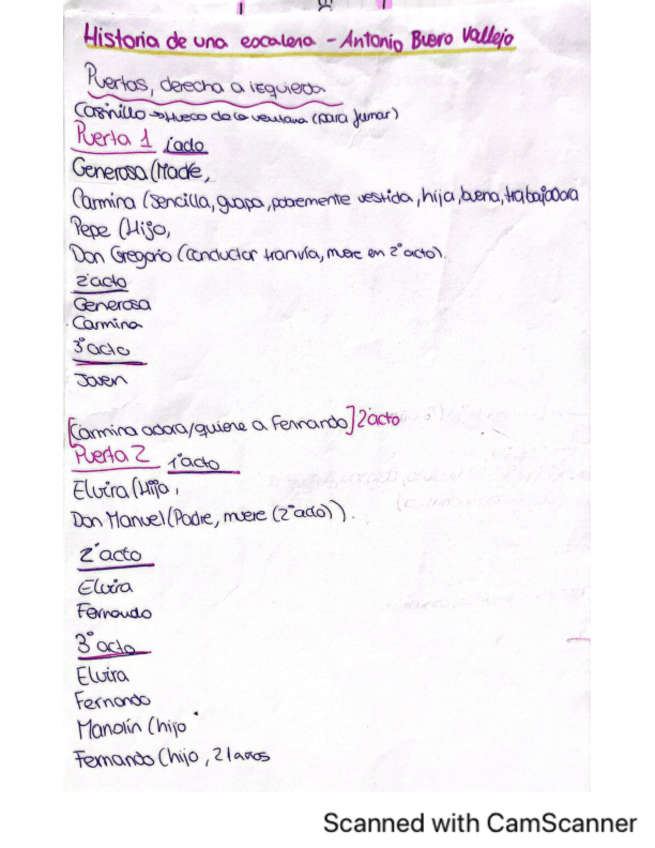 Historia de una escalera - Antonio Buero Vallejo
Puertas, derecha a izquierda
Casinillo → Hueco de la ventana (para fumar)
Puerta 1 1acto
Generosa (Madre,
Carmina (sencilla, guapa, pobremente vestida, hija, buena, trabajadora
Pepe (Hijo,
Don Gregorio (conductor tranvía, muere en 2º acto).
2ºacto
Generosa
Carmina
3ºacto
Joven
[Carmina adora/quiere a Fernando] 2ºacto
Puerta 2 1ºacto
Elvira (Hija,
Don Manuel (Padre, muere (2ºacto)).
2ºacto
Elvira
Fernando
3º acto
Elvira
Fernando
Manolín (hijo
Fernando (hijo, 21 años
Scanned with CamScanner